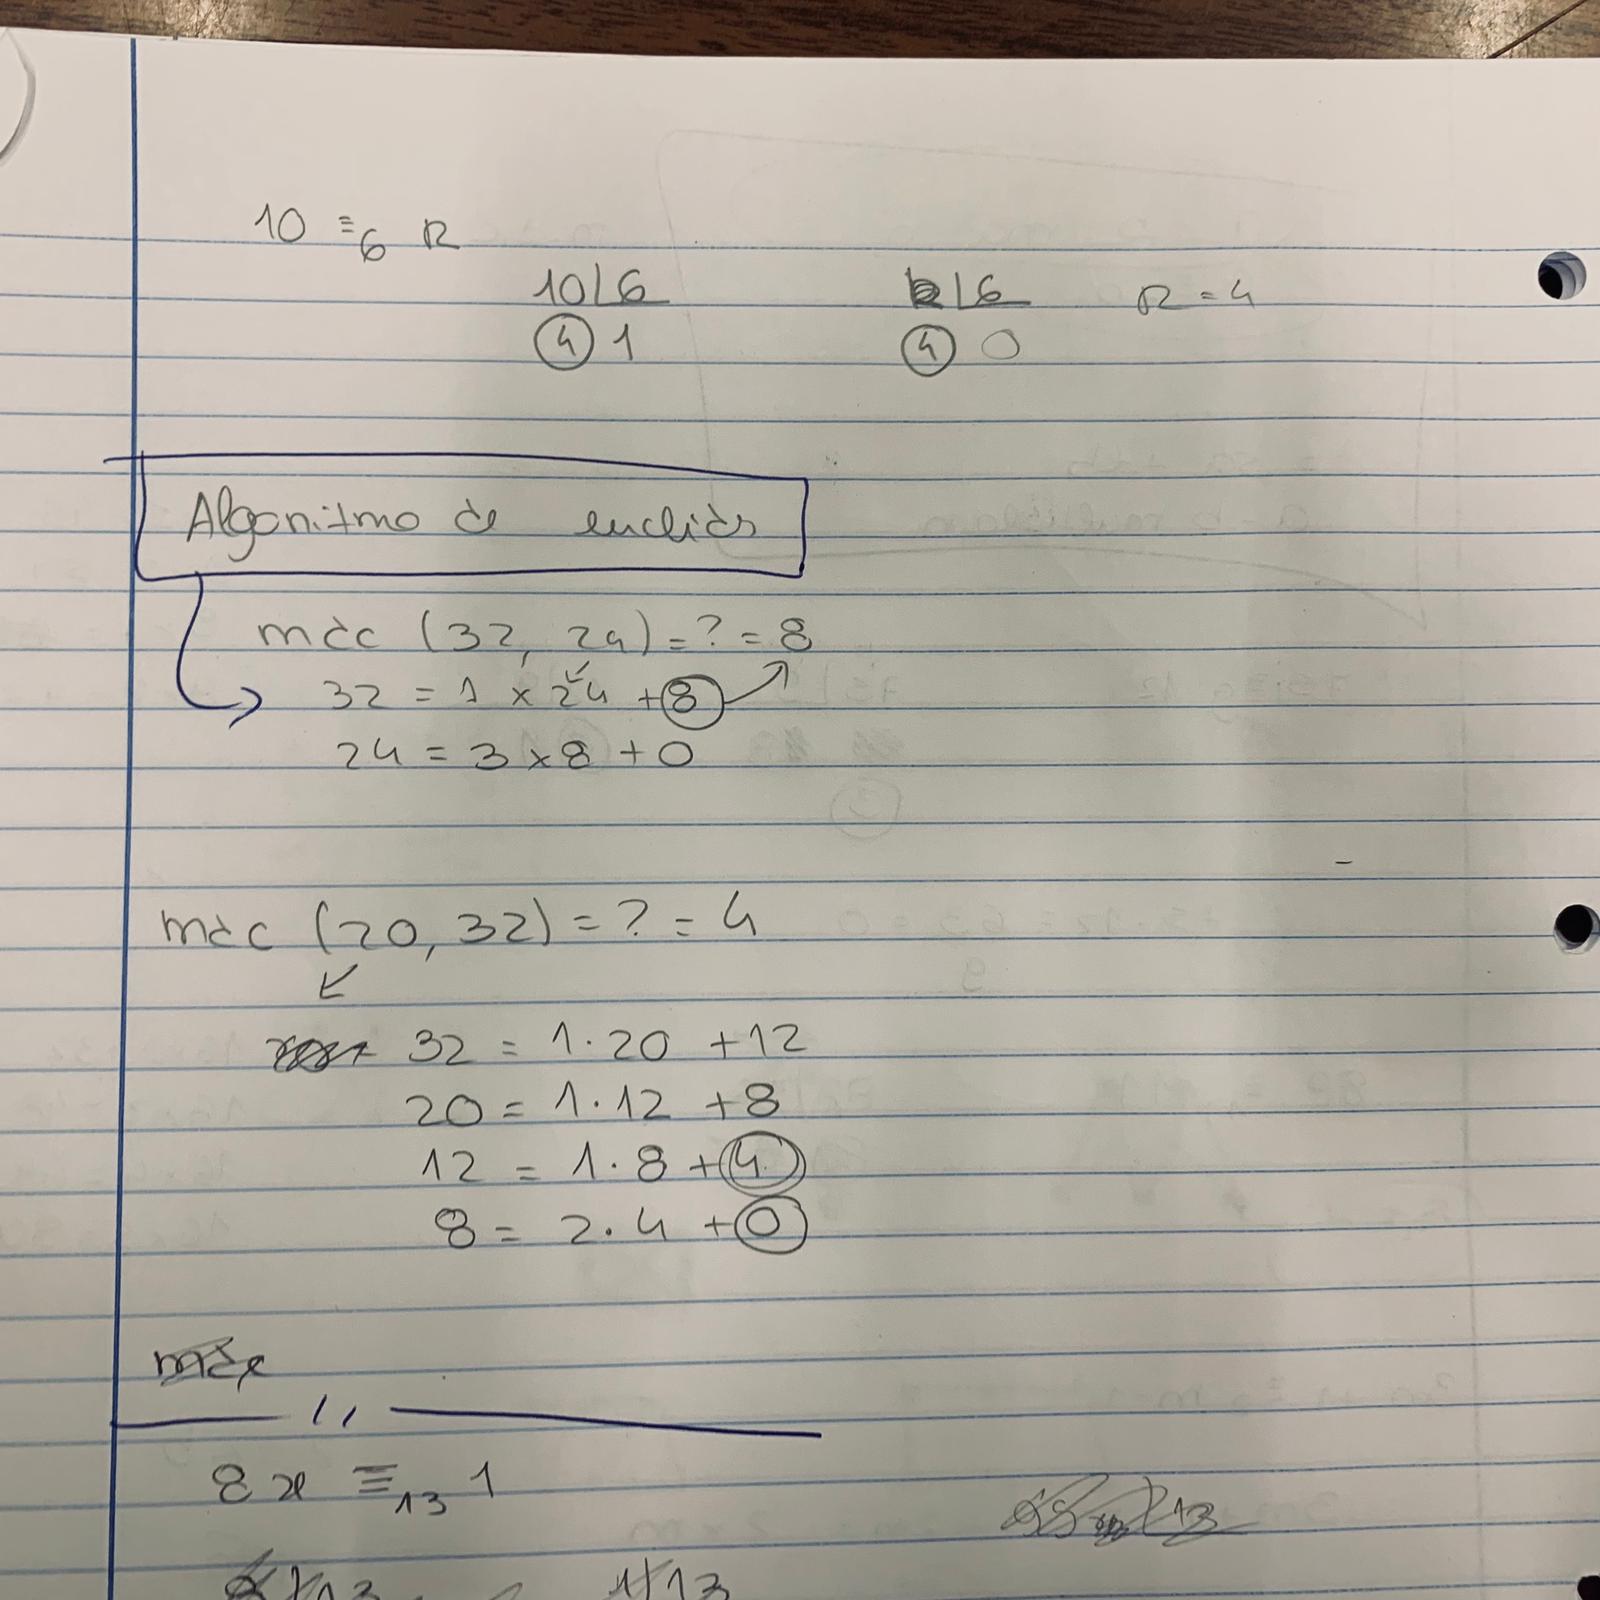 10 ≡₆ R
10 | 6 | 6 R = 4
4 1 4 0
Algoritmo de euclids
mdc (32, 24) = ? = 8
32 = 1 × 24 + 8
24 = 3 × 8 + 0
mdc (20, 32) = ? = 4
32 = 1 · 20 + 12
20 = 1 · 12 + 8
12 = 1 · 8 + 4
8 = 2 · 4 + 0
8x ≡₁₃ 1